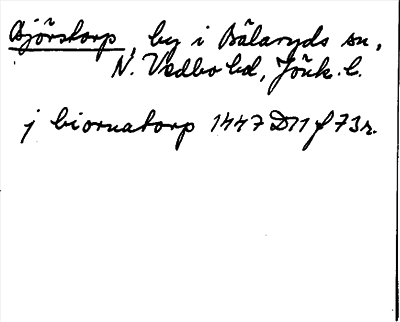 Björstorp, by i Bälaryds sn,
N. Vedbo hd, Jönk. l.
j biornatorp 1447 D11 f 73r.